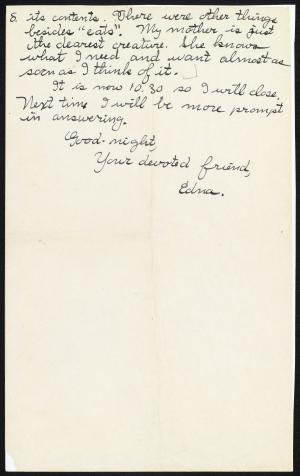 8. its contents. There were other things
besides "eats". My mother is just
the dearest creature. She knows
what I need and want almost as
soon as I think of it.
It is now 10:30 so I will close.
Next time I will be more prompt
in answering.
Good-night,
Your devoted friend,
Edna.